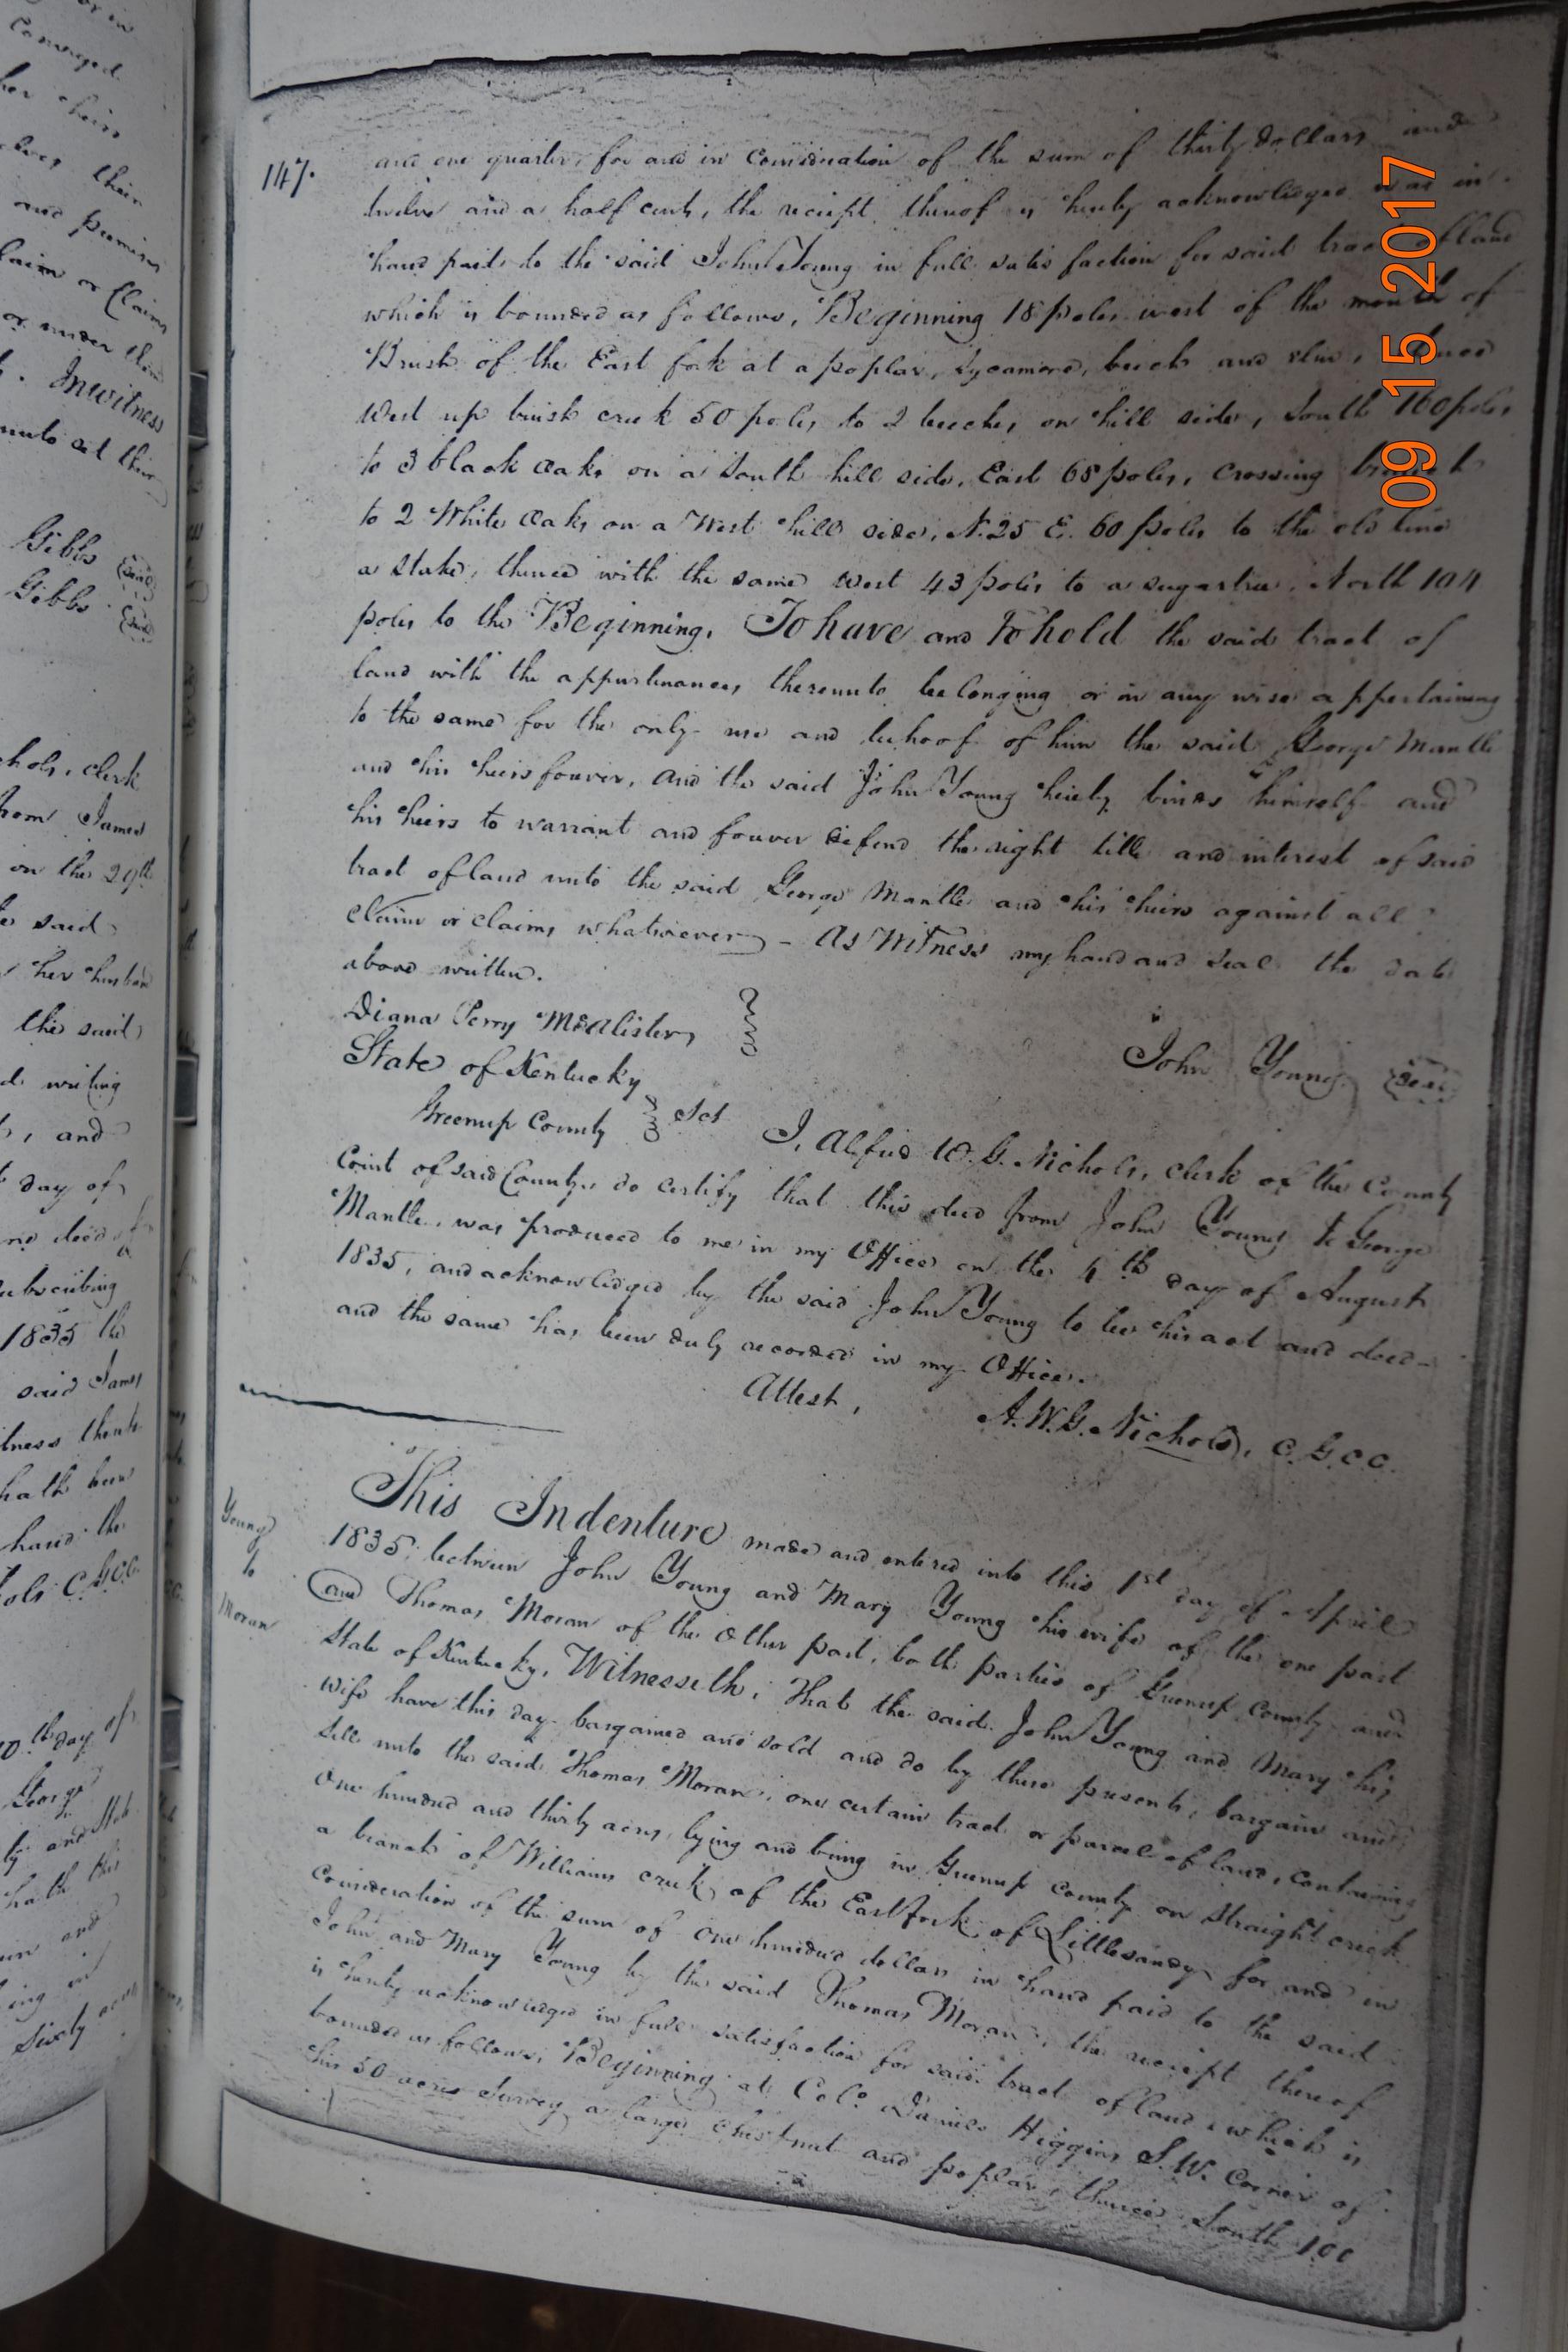 or in
Conveyed.
her heirs
their
and premises
laim or Claims
or under them
Inwitness
unto set their
Gibbs (Seal)
Gibbs (Seal)
hols, clerk
from James
on the 29th
said
her husband
the said
writing
, and
day of
deed
ubscribing
1835 the
said James
itness
hath been
hand the
ols C.G.C.C.
10th day of
George
and State
hath this
and
ing on
Sixty acres
147.
and one quarter, for and in consideration of the sum of thirty dollars and
twelve and a half cents, the reciept thereof is hereby acknowledged was in
hand paid to the said John Young in full satisfaction for said tract of land
which is bounded as follows, Beginning 18 poles west of the mouth of
Brush of the East fork at a poplar, Sycamore, beech and elm, thence
West up brush creek 50 poles to 2 beeches on hill side, South 160 poles
to 3 black Oaks on a South hill side, East 68 poles, crossing
to 2 White Oaks on a West hill side, N. 25 E. 60 poles to the old line
a stake, thence with the same west 43 poles to a sugartree, North 104
poles to the Beginning, To have and to hold the said tract of
land with the appurtenances thereunto belonging or in any wise appertaining
to the same for the only use and behoof of him the said George Mantle
and his heirs forever, and the said John Young hereby binds himself and
his heirs to warrant and forever defend the right title and interest of said
tract of land unto the said George Mantle and his heirs against all
claim or claims whatsoever - As Witness my hand and seal the date
above written.
Diana Perry McAlister,
John Young (Seal)
State of Kentucky
Greenup County Sct
I, Alfred W. G. Nichols, clerk of the County
Court of said County, do certify that this deed from John Young to George
Mantle, was produced to me in my Office on the 4th day of August
1835, and acknowledged by the said John Young to be his act and deed -
and the same has been duly recorded in my Office.
Attest, A. W. G. Nichols, C. G. C. C.
Young
to
Moran
This Indenture made and entered into this 1st day of April
1835, between John Young and Mary Young his wife of the one part
and Thomas Moran of the Other part, both parties of Greenup County and
State of Kentucky, Witnesseth, that the said John Young and Mary his
wife have this day bargained and sold and do by these presents, bargain and
Sell unto the said Thomas Moran, one certain tract or parcel of land, containing
One hundred and thirty acres, lying and being in Greenup County on Straight creek
a branch of Williams creek, of the East fork of Littlesandy for and in
Consideration of the sum of one hundred dollars in hand paid to the said
John and Mary Young by the said Thomas Moran, the reciept thereof
is hereby acknowledged in full satisfaction for said tract of land, which is
bounded as follows, Beginning at Colo. Daniels Higgins S.W. Corner of
his 50 acres Survey a large chestnut and poplar, thence South 100
09 15 2017